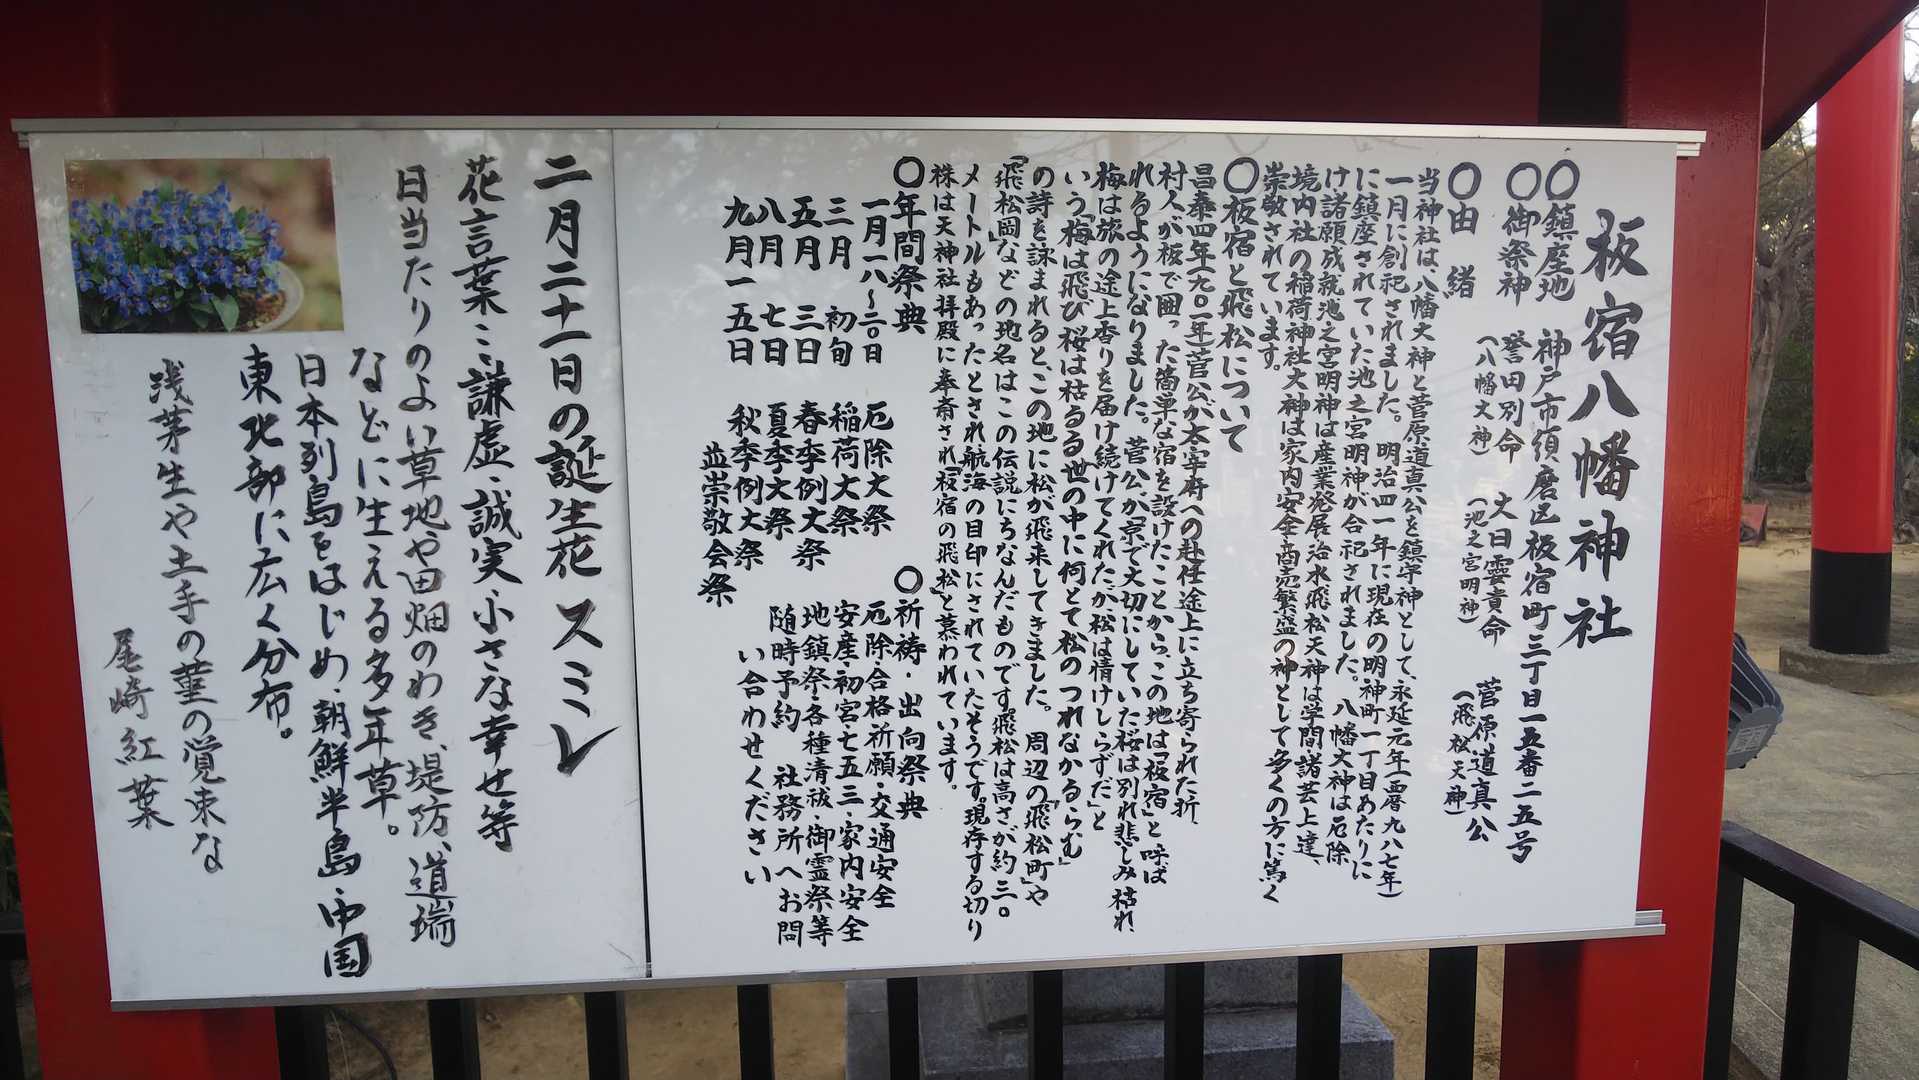 板宿八幡神社
〇鎮座地　神戸市須磨区板宿町三丁目一五番二五号
〇御祭神　誉田別命　大日孁貴命　菅原道真公
（八幡大神）（池之宮明神）（飛松天神）
〇由緒
当神社は、八幡大神と菅原道真公を鎮守神として、永延元年（西暦九八七年）
一月に創祀されました。明治四一年に現在の明神町一丁目あたりに
に鎮座されていた池之宮明神が合祀されました。八幡大神は厄除
け諸願成就池之宮明神は産業発展治水飛松天神は学問諸芸上達
境内社の稲荷神社大神は家内安全商売繁盛の神として多くの方に篤く
崇敬されています。
〇板宿と飛松について
昌泰四年（九〇一年）菅公が太宰府への赴任途上に立ち寄られた折、
村人が板で囲った簡単な宿を設けたことから、この地は「板宿」と呼ば
れるようになりました。菅公が京で大切にしていた桜は別れ悲しみ枯れ、
梅は旅の途上香りを届け続けてくれたが、松は情けしらずだ」と
いう「梅は飛び桜は枯るる世の中に何とて松のつれなかるらむ」
の詩を詠まれると、この地に松が飛来してきました。周辺の「飛松町」や
「飛松岡」などの地名はこの伝説にちなんだものです。飛松は高さが約三〇
メートルもあったとされ航海の目印にされていたそうです。現存する切り
株は天神社拝殿に奉斎され「板宿の飛松」と慕われています。
〇年間祭典
一月一八〜二〇日　厄除大祭
三月　初旬　稲荷大祭
五月　三日　春季例大祭
八月　七日　夏季大祭
九月一五日　秋季例大祭
並崇敬会祭
〇祈祷・出向祭典
厄除・合格祈願・交通安全
安産・初宮・七五三・家内安全
地鎮祭・各種清祓・御霊祭等
随時予約　社務所へお問
い合わせください
二月二十一日の誕生花　スミレ
花言葉…謙虚・誠実・小さな幸せ等
日当たりのよい草地や田畑のわき、堤防、道端
などに生える多年草。
日本列島をはじめ、朝鮮半島・中国
東北部に広く分布。
浅茅生や土手の菫の覚束な
尾崎紅葉